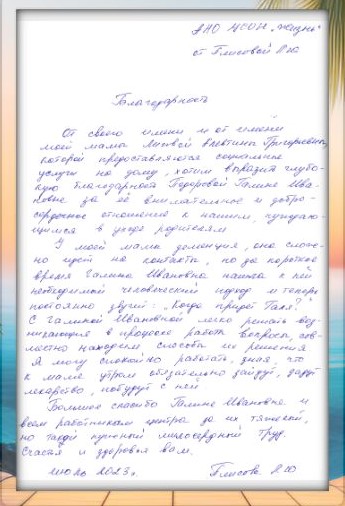 АНО ЦСОН "Жизнь"
от Плисовой Л.Ю
Благодарность
От своего имени и от имени
моей мамы Валентины Григорьевны,
которой предоставляются социальные
услуги на дому, хотим выразить глубо-
кую благодарность Галине Ива-
новне за её внимательное и добро-
сердечное отношение к нашим, нуждаю-
щимся в уходе родителям.
У моей мамы деменция, она слож-
но идет на контакт, но за короткое
время Галина Ивановна нашла к ней
необходимый человеческий подход и теперь
постоянно звучит: "Когда придет Галя?"
С Галиной Ивановной легко решать воз-
никающие в процессе работы вопросы, сов-
местно находим способы их решения.
Я могу спокойно работать, зная, что
к маме утром обязательно зайдут, дадут
лекарство, побудут с ней.
Большое спасибо Галине Ивановне и
всем работникам центра за их тяжелый,
но такой нужный милосердный труд.
Счастья и здоровья вам.
июль 2023 г. Плисова Л.Ю